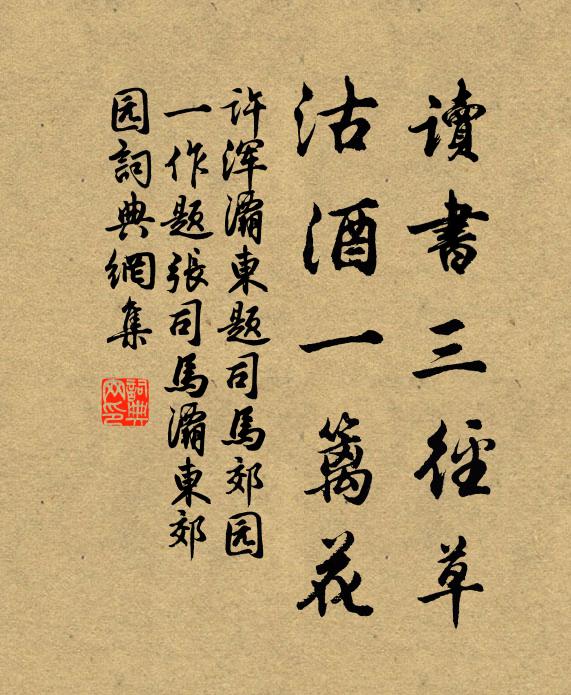 讀書三徑草
沽酒一籬花
许渾灞東題司馬郊园
一作題張司馬灞東郊
园詞典網集
詞典
网印